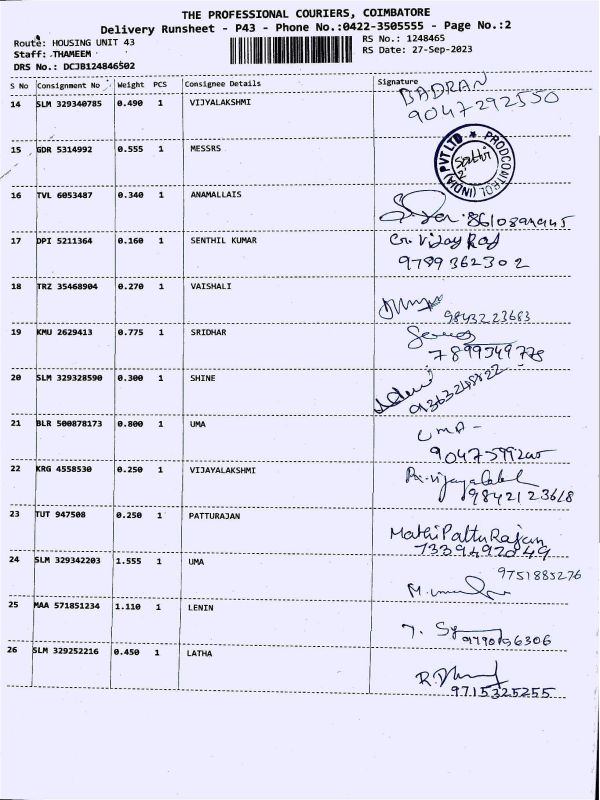 THE PROFESSIONAL COURIERS, COIMBATORE
Delivery Runsheet - P43 - Phone No.:0422-3505555 - Page No.:2
Route: HOUSING UNIT 43
RS No.: 1248465
Staff: THAMEEM
RS Date: 27-Sep-2023
DRS No.: DCJB124846502
S No Consignment No Weight PCS Consignee Details Signature
14 SLM 329340785 0.490 1 VIJYALAKSHMI BADRAN
9047292550
15 GDR 5314992 0.555 1 MESSRS
PRODCONTROL (INDIA) PVT LTD ★
16 TVL 6053487 0.340 1 ANAMALLAIS
17 DPI 5211364 0.160 1 SENTHIL KUMAR Vijay Raj
9789362302
18 TRZ 35468904 0.270 1 VAISHALI
9843223683
19 KMU 2629413 0.775 1 SRIDHAR
7899349778
20 SLM 329328590 0.300 1 SHINE
21 BLR 500878173 0.800 1 UMA UMA
22 KRG 4558530 0.250 1 VIJAYALAKSHMI
9842123618
23 TUT 947508 0.250 1 PATTURAJAN Mathi Pattu Rajan
7339492049
24 SLM 329342203 1.555 1 UMA 9751885276
25 MAA 571851234 1.110 1 LENIN
9790156306
26 SLM 329252216 0.450 1 LATHA
9715325255